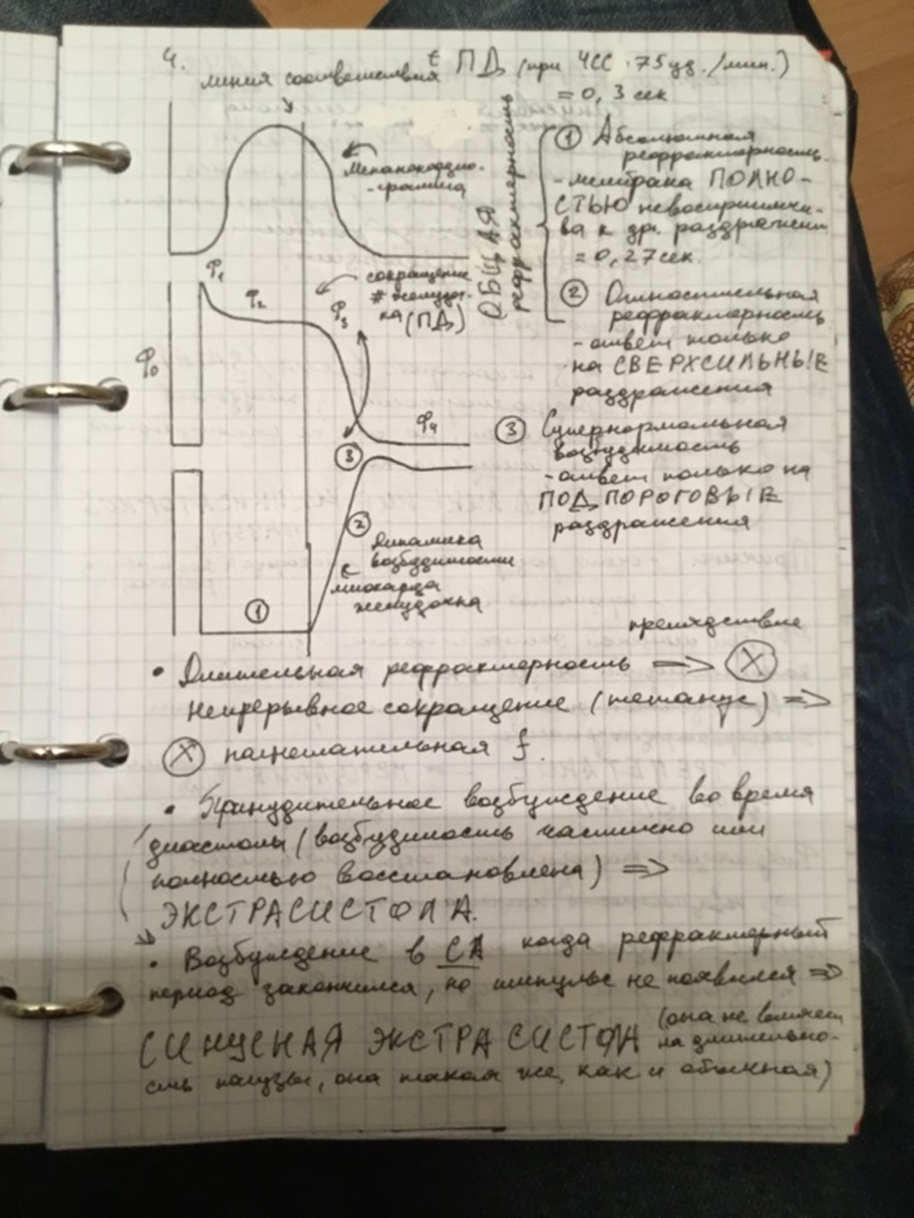 4.
линия соответствия
t ПД (при ЧСС 75 уд./мин.)
= 0,3 сек
Механокардио-
-грамма
ОБЩАЯ
рефрактерность
① Абсолютная
рефрактерность
- мембрана ПОЛНО-
СТЬЮ невосприимчи-
ва к др. раздражен
= 0,27 сек.
② Относительная
рефрактерность
- ответ только
на СВЕРХСИЛЬНЫЕ
раздражения
③ Супернормальная
возбудимость
- ответ только на
ПОД ПОРОГОВЫЕ
раздражения
φ1
φ2
φ3
φ0
φ4
сокращение
желудоч-
ка (ПД)
③
②
Динамика
возбудимости
миокарда
желудочка
①
препядствие
• Длительная рефрактерность => Ⓧ
непрерывное сокращение (тетанус) =>
Ⓧ нагнетательная f.
• Принудительное возбуждение во время
диастолы (возбудимость частично или
полностью восстановлена) =>
ЭКСТРАСИСТОЛА.
• Возбуждение в СА когда рефрактерный
период закончился, но импульс не появился =>
СИНУСНАЯ ЭКСТРА СИСТОЛА (она не влияет
на длительно-
сть паузы, она такая же, как и обычная)